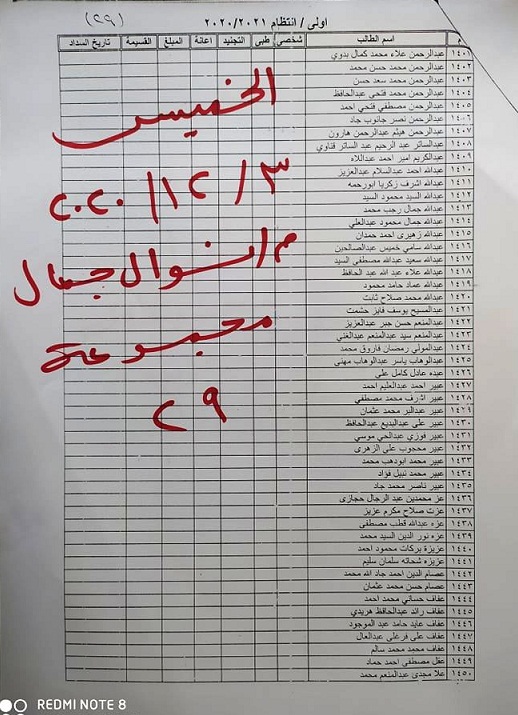 (٢٩)
اولى / انتظام ٢٠٢٠/٢٠٢١
م اسم الطالب شخصي طبى التجنيد اعانة المبلغ القسيمة تاريخ السداد
١٤٠١ عبدالرحمن علاء محمد كمال بدوي
١٤٠٢ عبدالرحمن محمد حسن محمد
١٤٠٣ عبدالرحمن محمد سعد حسن
١٤٠٤ عبدالرحمن محمد فتحي عبدالحافظ
١٤٠٥ عبدالرحمن مصطفي فتحي احمد
١٤٠٦ عبدالرحمن نصر جانوب جاد
١٤٠٧ عبدالرحمن هيثم عبدالرحمن هارون
١٤٠٨ عبدالساتر عبد الرحيم عبد الساتر قناوي
١٤٠٩ عبدالكريم امير احمد عبداللاه
١٤١٠ عبدالله احمد عبدالسلام عبدالعزيز
١٤١١ عبدالله اشرف زكريا ابورحمه
١٤١٢ عبدالله السيد محمود السيد
١٤١٣ عبدالله جمال رجب محمد
١٤١٤ عبدالله جمال محمود عبدالعلي
١٤١٥ عبدالله زهيرى احمد حمدان
١٤١٦ عبدالله سامي خميس عبدالصالحين
١٤١٧ عبدالله سعيد عبدالله مصطفى السيد
١٤١٨ عبدالله علاء عبد الله عبد الحافظ
١٤١٩ عبدالله عماد حامد محمود
١٤٢٠ عبدالله محمد صلاح ثابت
١٤٢١ عبدالمسيح يوسف فايز حشمت
١٤٢٢ عبدالمنعم حسن جبر عبدالعزيز
١٤٢٣ عبدالمنعم سيد عبدالمنعم عبدالغني
١٤٢٤ عبدالمولي رمضان فاروق محمد
١٤٢٥ عبدالوهاب ياسر عبدالوهاب مهنى
١٤٢٦ عبده عادل كامل على
١٤٢٧ عبير احمد عبدالعليم احمد
١٤٢٨ عبير اشرف محمد مصطفي
١٤٢٩ عبير عبدالبر محمد عثمان
١٤٣٠ عبير على عبدالبديع عبدالحافظ
١٤٣١ عبير فوزي عبدالحي موسي
١٤٣٢ عبير محجوب علي الزهرى
١٤٣٣ عبير محمد ابودهب محمد
١٤٣٤ عبير محمد نبيل فؤاد
١٤٣٥ عبير ناصر محمد جاد
١٤٣٦ عز محمدين عبد الرجال حجازى
١٤٣٧ عزت صلاح مكرم عزيز
١٤٣٨ عزه عبدالله قطب مصطفى
١٤٣٩ عزه نور الدين السيد محمد
١٤٤٠ عزيزة بركات محمود احمد
١٤٤١ عزيزة شحاته سلمان سليم
١٤٤٢ عصام الدين احمد جاد الله محمد
١٤٤٣ عصام حسن محمد عثمان
١٤٤٤ عفاف حساني محمد احمد
١٤٤٥ عفاف رائد عبدالحافظ هريدي
١٤٤٦ عفاف عايد حامد عبد الموجود
١٤٤٧ عفاف على فرغلى عبدالعال
١٤٤٨ عفاف محمد محمد سالم
١٤٤٩ عقل مصطفى احمد حماد
١٤٥٠ علا مجدى عبدالمنعم محمد
الخميس
٣ / ١٢ / ٢٠٢٠
م / نوال جمال
مجموعة
٢٩
REDMI NOTE 8